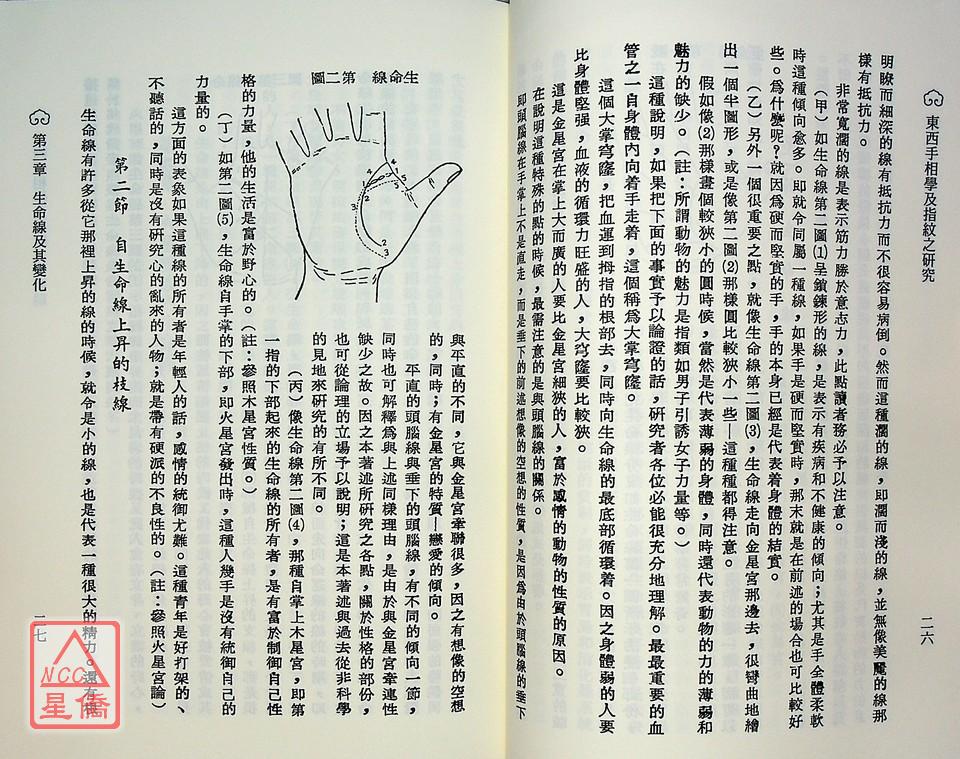 東西手相學及指紋之研究
二六
明瞭而細深的線有抵抗力而不很容易病倒。然而這種濶的線，即濶而淺的線，並無像美麗的線那
樣有抵抗力。
非常寬濶的線是表示筋力勝於意志力，此點讀者務必予以注意。
（甲）如生命線第二圖⑴呈鎖鍊形的線，是表示有疾病和不健康的傾向；尤其是手全體柔軟
時這種傾向愈多。即就令同屬一種線，如果手是硬而堅實時，那末就是在前述的場合也可比較好
些。爲什麽呢？就因爲硬而堅實的手，手的本身已經是代表着身體的結實。
（乙）另外一個很重要之點，就像生命線第二圖⑶，生命線走向金星宮那邊去，很彎曲地繪
出一個半圖形，或是像第二圖⑵那樣圓比較狹小一些—這種種都得注意。
假如像⑵那樣畫個較狹小的圓時候，當然是代表薄弱的身體，同時還代表動物的力的薄弱和
魅力的缺少。（註：所謂動物的魅力是指類如男子引誘女子力量等。）
這種說明，如果把下面的事實予以論證的話，研究者各位必能很充分地理解。最最重要的血
管之一自身體內向着手走着，這個稱爲大掌穹窿。
這個大掌穹窿，把血運到拇指的根部去，同時向生命線的最底部循環着。因之身體弱的人要
比身體堅强，血液的循環力旺盛的人，大穹窿要比較狹。
這是金星宮在掌上大而廣的人要比金星宮細狹的人，富於感情的動物的性質的原因。
在說明這種特殊的點的時候，最需注意的是與頭腦線的關係。
即頭腦線在手掌上不是直走，而是垂下的前述想像的空想的性質，是因爲由於頭腦線的垂下
生命線　第二圖
1
2
3
4
5
3
2
與平直的不同，它與金星宮牽聯很多，因之有想像的空想
的，同時；有金星宮的特質—戀愛的傾向。
平直的頭腦線與垂下的頭腦線，有不同的傾向一節，
同時也可解釋爲與上述同樣理由，是由於與金星宮牽連性
缺少之故。因之本著述所研究之各點，關於性格的部份，
也可從論理的立場予以說明；這是本著述與過去從非科學
的見地來研究的有所不同。
（丙）像生命線第二圖⑷，那種自掌上木星宮，即第
一指的下部起來的生命線的所有者，是有富於制御自己性
格的力量，他的生活是富於野心的。（註：參照木星宮性質。）
（丁）如第二圖⑸，生命線自手掌的下部，即火星宮發出時，這種人幾乎是沒有統御自己的
力量的。
這方面的表象如果這種線的所有者是年輕人的話，感情的統御尤難。這種青年是好打架的、
不聽話的，同時是沒有研究心的亂來的人物；就是帶有硬派的不良性的。（註：參照火星宮論）
第二節　自生命線上昇的枝線
生命線有許多從它那裡上昇的線的時候，就令是小的線，也是代表一種很大的精力。還有根
第三章　生命線及其變化
二七
NCC
星僑